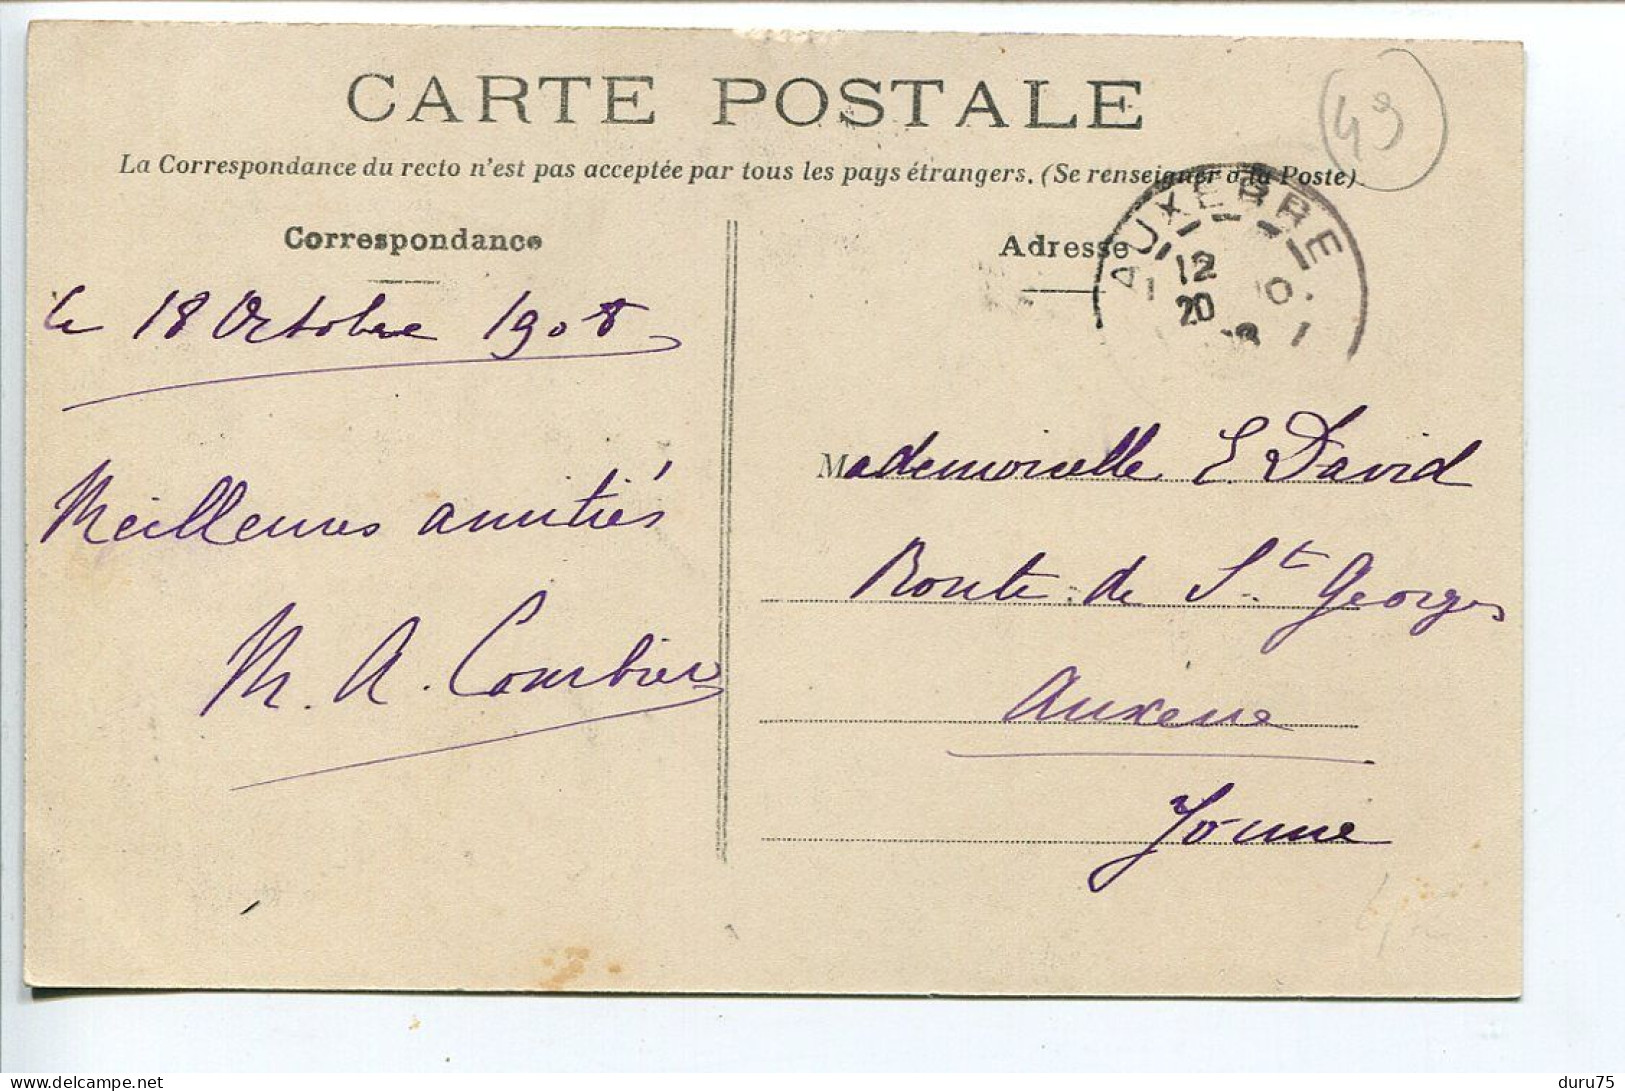 CARTE POSTALE
La Correspondance du recto n'est pas acceptée par tous les pays étrangers. (Se renseigner à la Poste)
49
Correspondance
Adresse
AUXERRE
12
20
le 18 Octobre 1908
Meilleures amitiés
M. A. Combier
Mademoiselle E. David
Route de St Georges
Auxerre
Yonne
delcampe.net
duru75